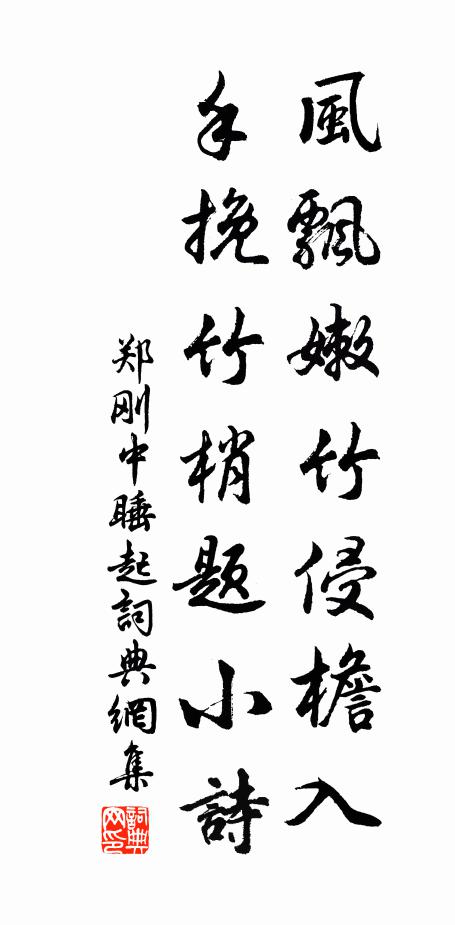 風飄嫩竹侵檐入
手挽竹梢題小詩
郑刚中睡起詞典網集
詞典网印